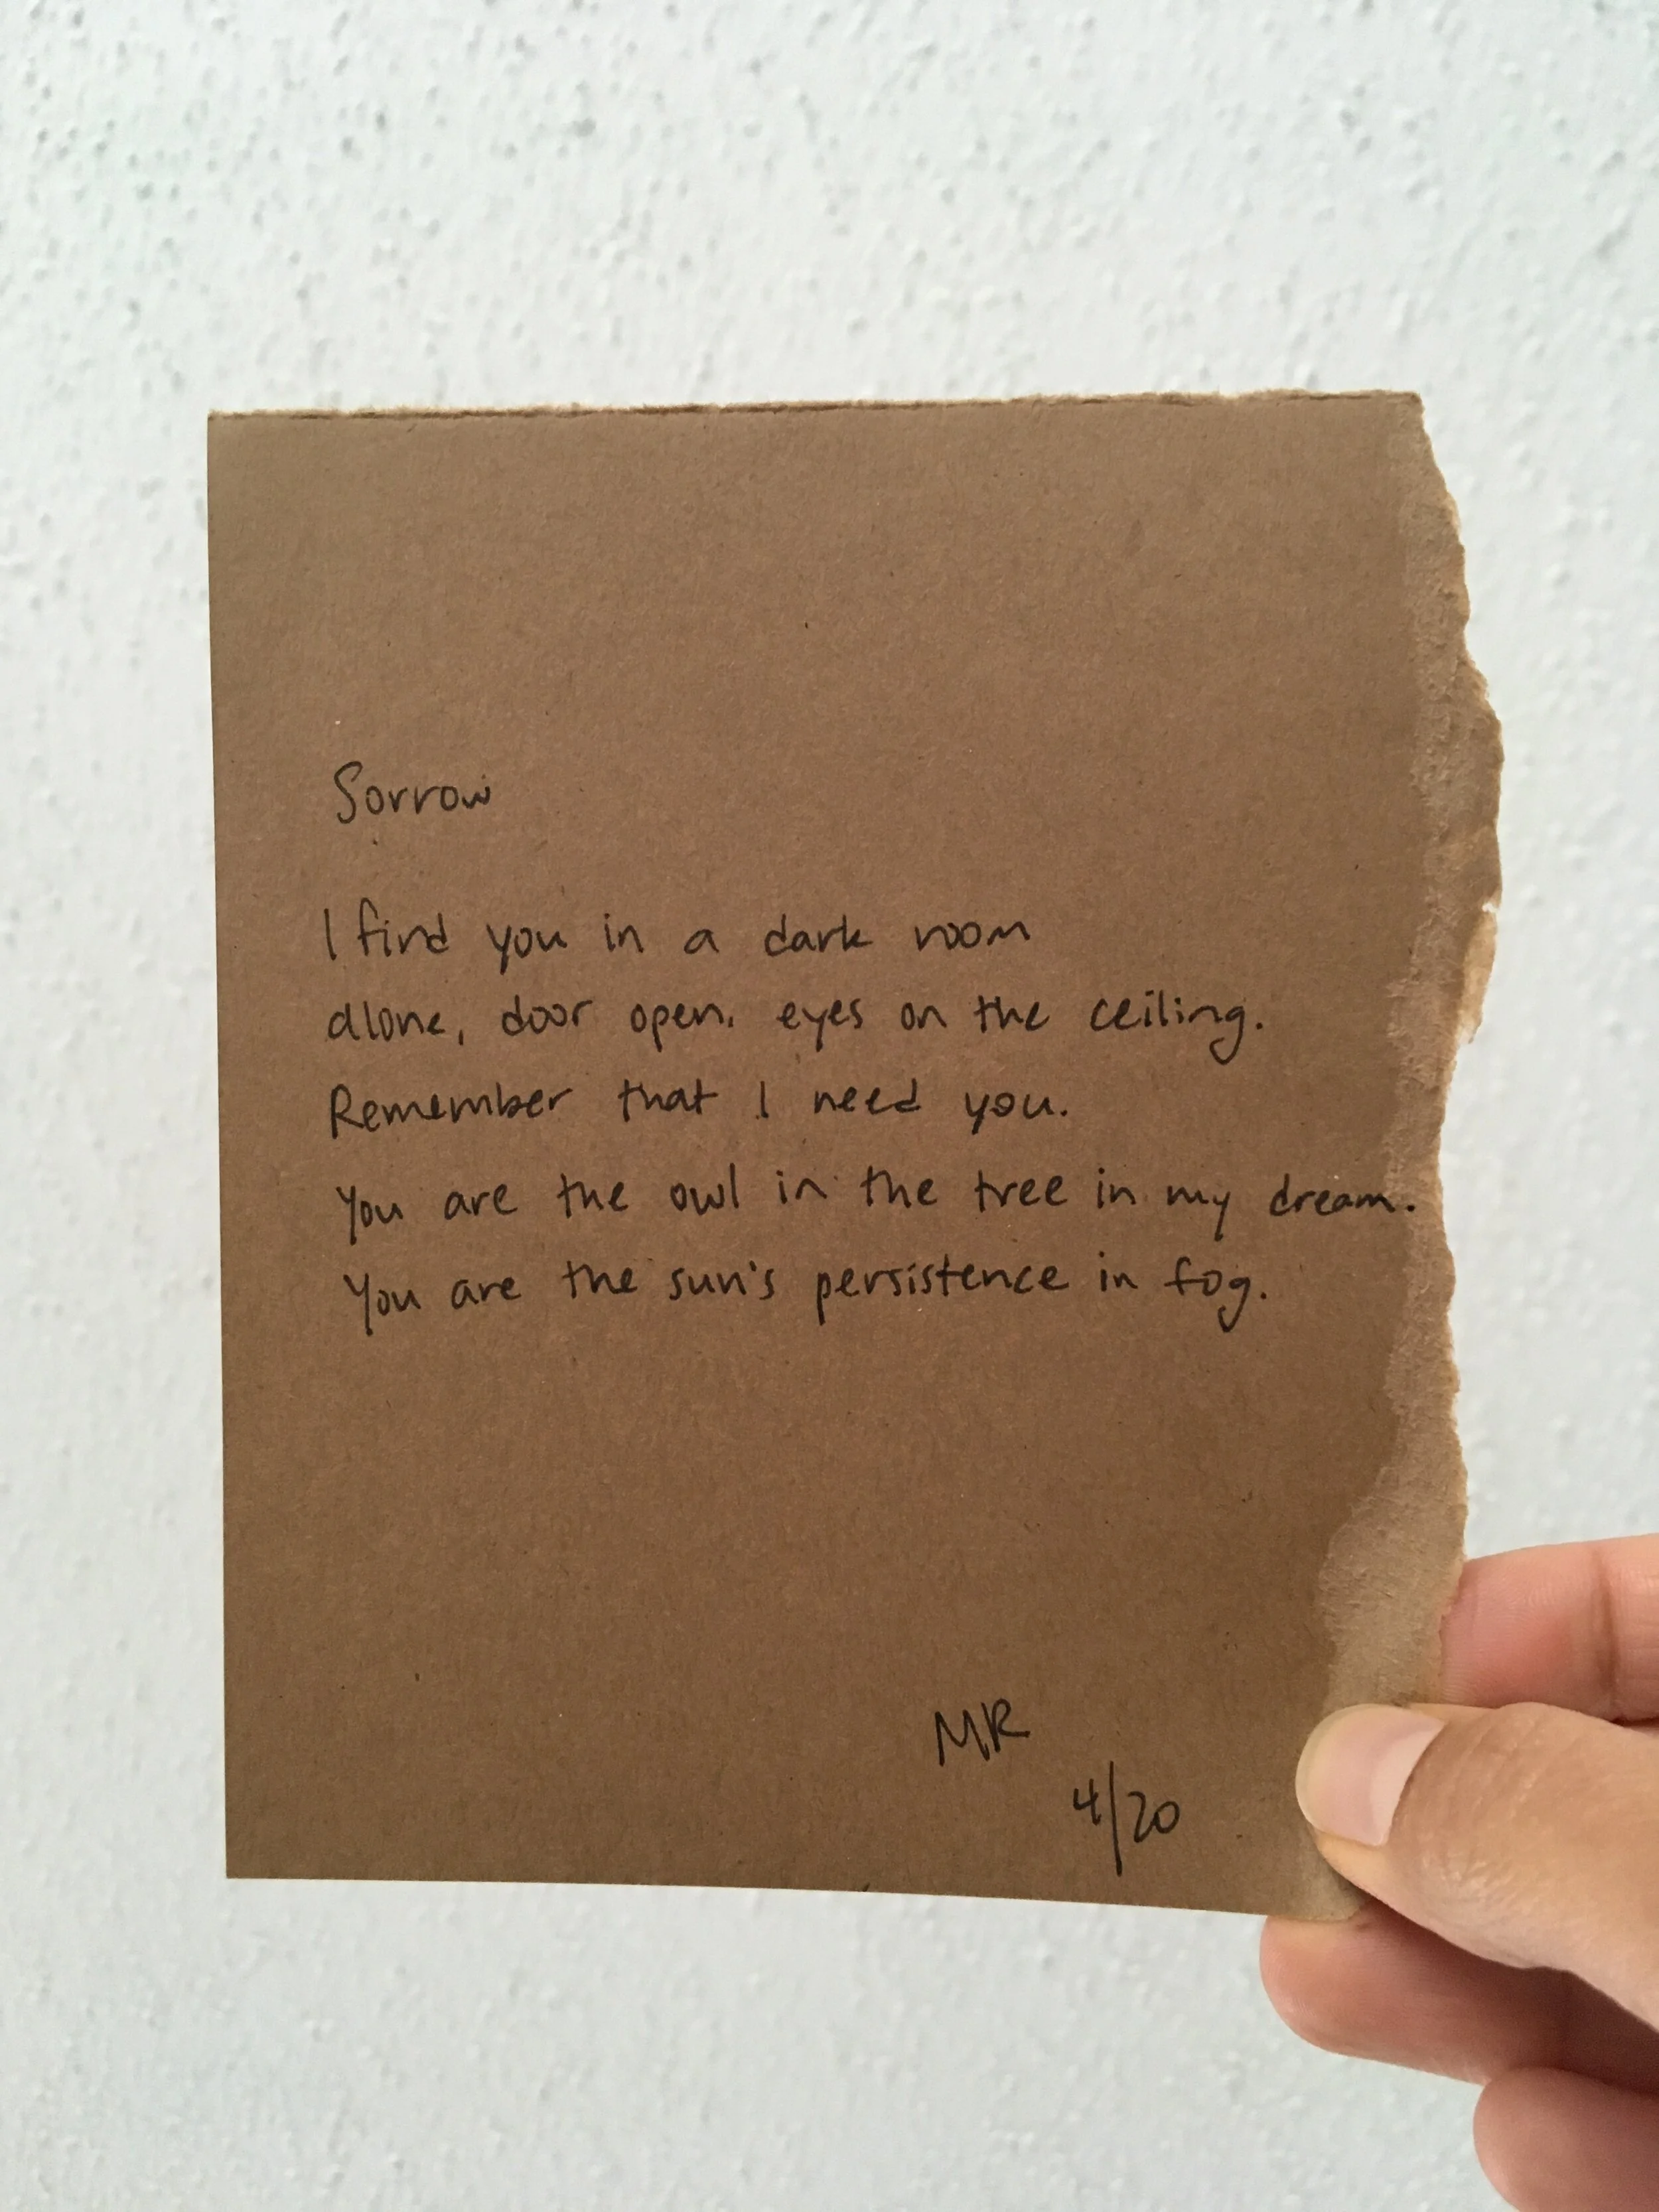 Sorrow
I find you in a dark room
alone, door open. eyes on the ceiling.
Remember that I need you.
You are the owl in the tree in my dream.
You are the sun's persistence in fog.
MR
4/20